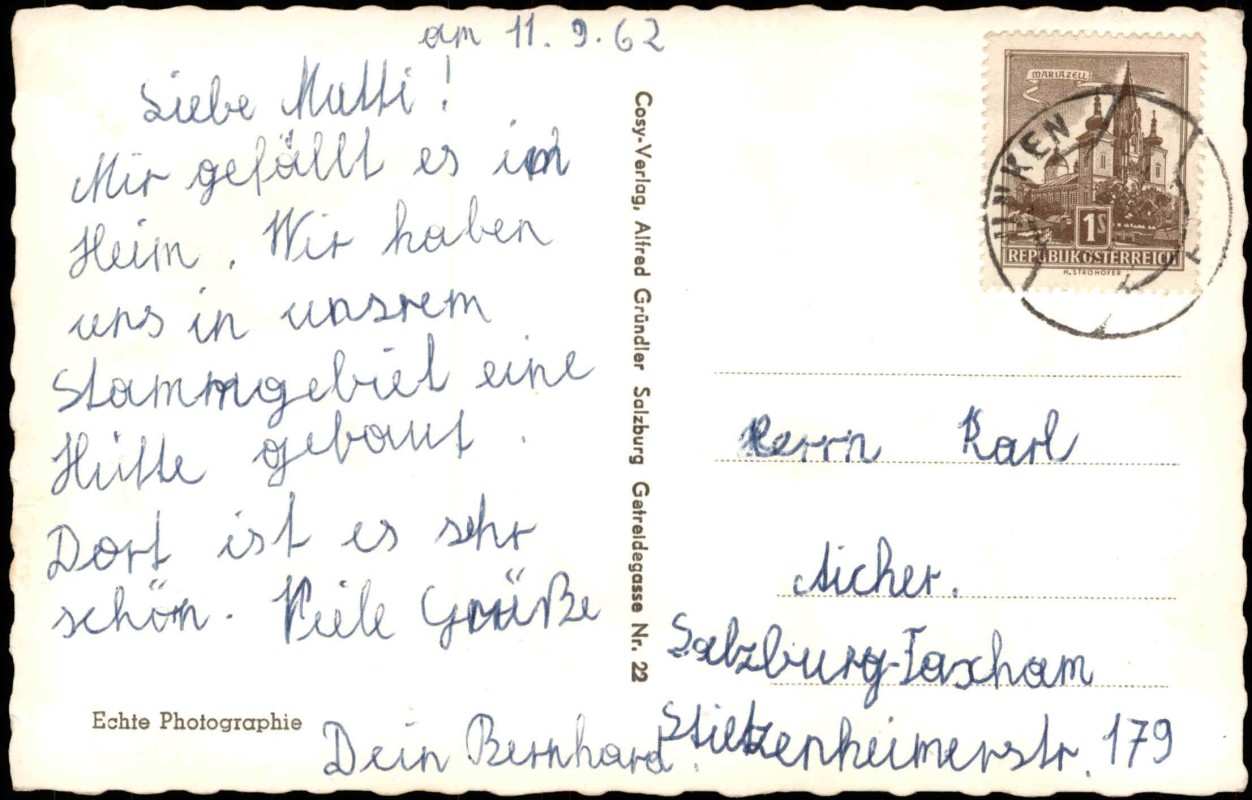 am 11.9.62
Liebe Mutti!
Mir gefällt es im
Heim. Wir haben
uns in unsrem
Stammgebiet eine
Hütte gebaut.
Dort ist es sehr
schön. Viele Grüße
Dein Bernhard.
Echte Photographie
Cosy-Verlag, Alfred Gründler Salzburg Getreidegasse Nr. 22
MARIAZELL
1S
REPUBLIK ÖSTERREICH
H. STROHOFER
UNKEN
Herrn Karl
Aicher.
Salzburg-Taxham
Stietzenheimerstr. 179